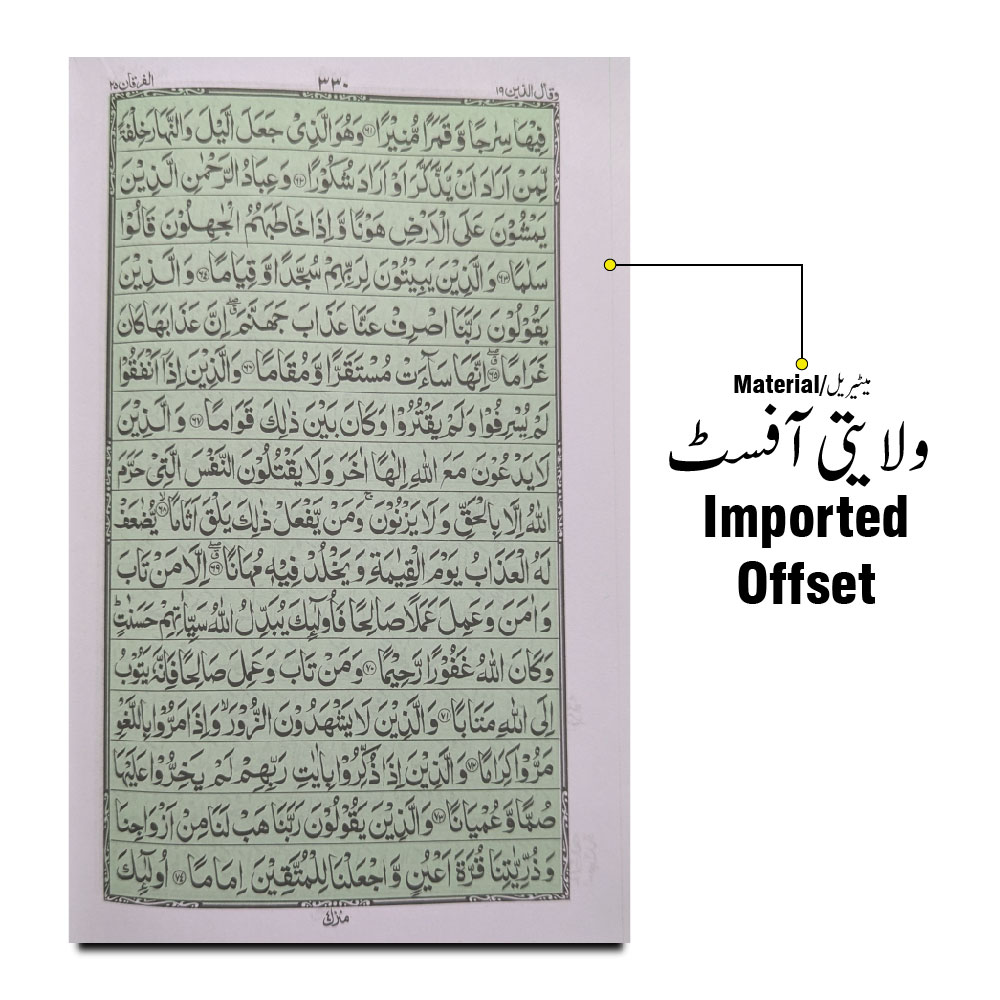 وقال الذین ۱۹
۳۳۰
الفرقان ۲۵
فِیْهَا سِرٰجًا وَّ قَمَرًا مُّنِیْرًا ﴿۶۱﴾ وَهُوَ الَّذِیْ جَعَلَ الَّیْلَ وَالنَّهَارَ خِلْفَةً
لِّمَنْ اَرَادَ اَنْ یَّذَّكَّرَ اَوْ اَرَادَ شُكُوْرًا ﴿۶۲﴾ وَعِبَادُ الرَّحْمٰنِ الَّذِیْنَ
یَمْشُوْنَ عَلَی الْاَرْضِ هَوْنًا وَّ اِذَا خَاطَبَهُمُ الْجٰهِلُوْنَ قَالُوْا
سَلٰمًا ﴿۶۳﴾ وَالَّذِیْنَ یَبِیْتُوْنَ لِرَبِّهِمْ سُجَّدًا وَّ قِیَامًا ﴿۶۴﴾ وَالَّذِیْنَ
یَقُوْلُوْنَ رَبَّنَا اصْرِفْ عَنَّا عَذَابَ جَهَنَّمَ ۖۗ اِنَّ عَذَابَهَا كَانَ
غَرَامًا ﴿۶۵﴾ ۖۗ اِنَّهَا سَآءَتْ مُسْتَقَرًّا وَّ مُقَامًا ﴿۶۶﴾ وَالَّذِیْنَ اِذَاۤ اَنْفَقُوْا
لَمْ یُسْرِفُوْا وَلَمْ یَقْتُرُوْا وَكَانَ بَیْنَ ذٰلِكَ قَوَامًا ﴿۶۷﴾ وَالَّذِیْنَ
لَا یَدْعُوْنَ مَعَ اللّٰهِ اِلٰهًا اٰخَرَ وَلَا یَقْتُلُوْنَ النَّفْسَ الَّتِیْ حَرَّمَ
اللّٰهُ اِلَّا بِالْحَقِّ وَلَا یَزْنُوْنَ ۚ وَمَنْ یَّفْعَلْ ذٰلِكَ یَلْقَ اَثَامًا ﴿۶۸﴾ ۙ یُّضٰعَفْ
لَهُ الْعَذَابُ یَوْمَ الْقِیٰمَةِ وَ یَخْلُدْ فِیْهٖ مُهَانًا ﴿۶۹﴾ ۖۗ اِلَّا مَنْ تَابَ
وَ اٰمَنَ وَ عَمِلَ عَمَلًا صَالِحًا فَاُولٰٓئِكَ یُبَدِّلُ اللّٰهُ سَیِّاٰتِهِمْ حَسَنٰتٍ
وَكَانَ اللّٰهُ غَفُوْرًا رَّحِیْمًا ﴿۷۰﴾ وَمَنْ تَابَ وَ عَمِلَ صَالِحًا فَاِنَّهٗ یَتُوْبُ
اِلَی اللّٰهِ مَتَابًا ﴿۷۱﴾ وَالَّذِیْنَ لَا یَشْهَدُوْنَ الزُّوْرَ ۙ وَاِذَا مَرُّوْا بِاللَّغْوِ
مَرُّوْا كِرَامًا ﴿۷۲﴾ وَالَّذِیْنَ اِذَا ذُكِّرُوْا بِاٰیٰتِ رَبِّهِمْ لَمْ یَخِرُّوْا عَلَیْهَا
صُمًّا وَّ عُمْیَانًا ﴿۷۳﴾ وَالَّذِیْنَ یَقُوْلُوْنَ رَبَّنَا هَبْ لَنَا مِنْ اَزْوَاجِنَا
وَ ذُرِّیّٰتِنَا قُرَّةَ اَعْیُنٍ وَّ اجْعَلْنَا لِلْمُتَّقِیْنَ اِمَامًا ﴿۷۴﴾ اُولٰٓئِكَ
Material/میٹیریل
ولایتی آفسٹ
Imported
Offset